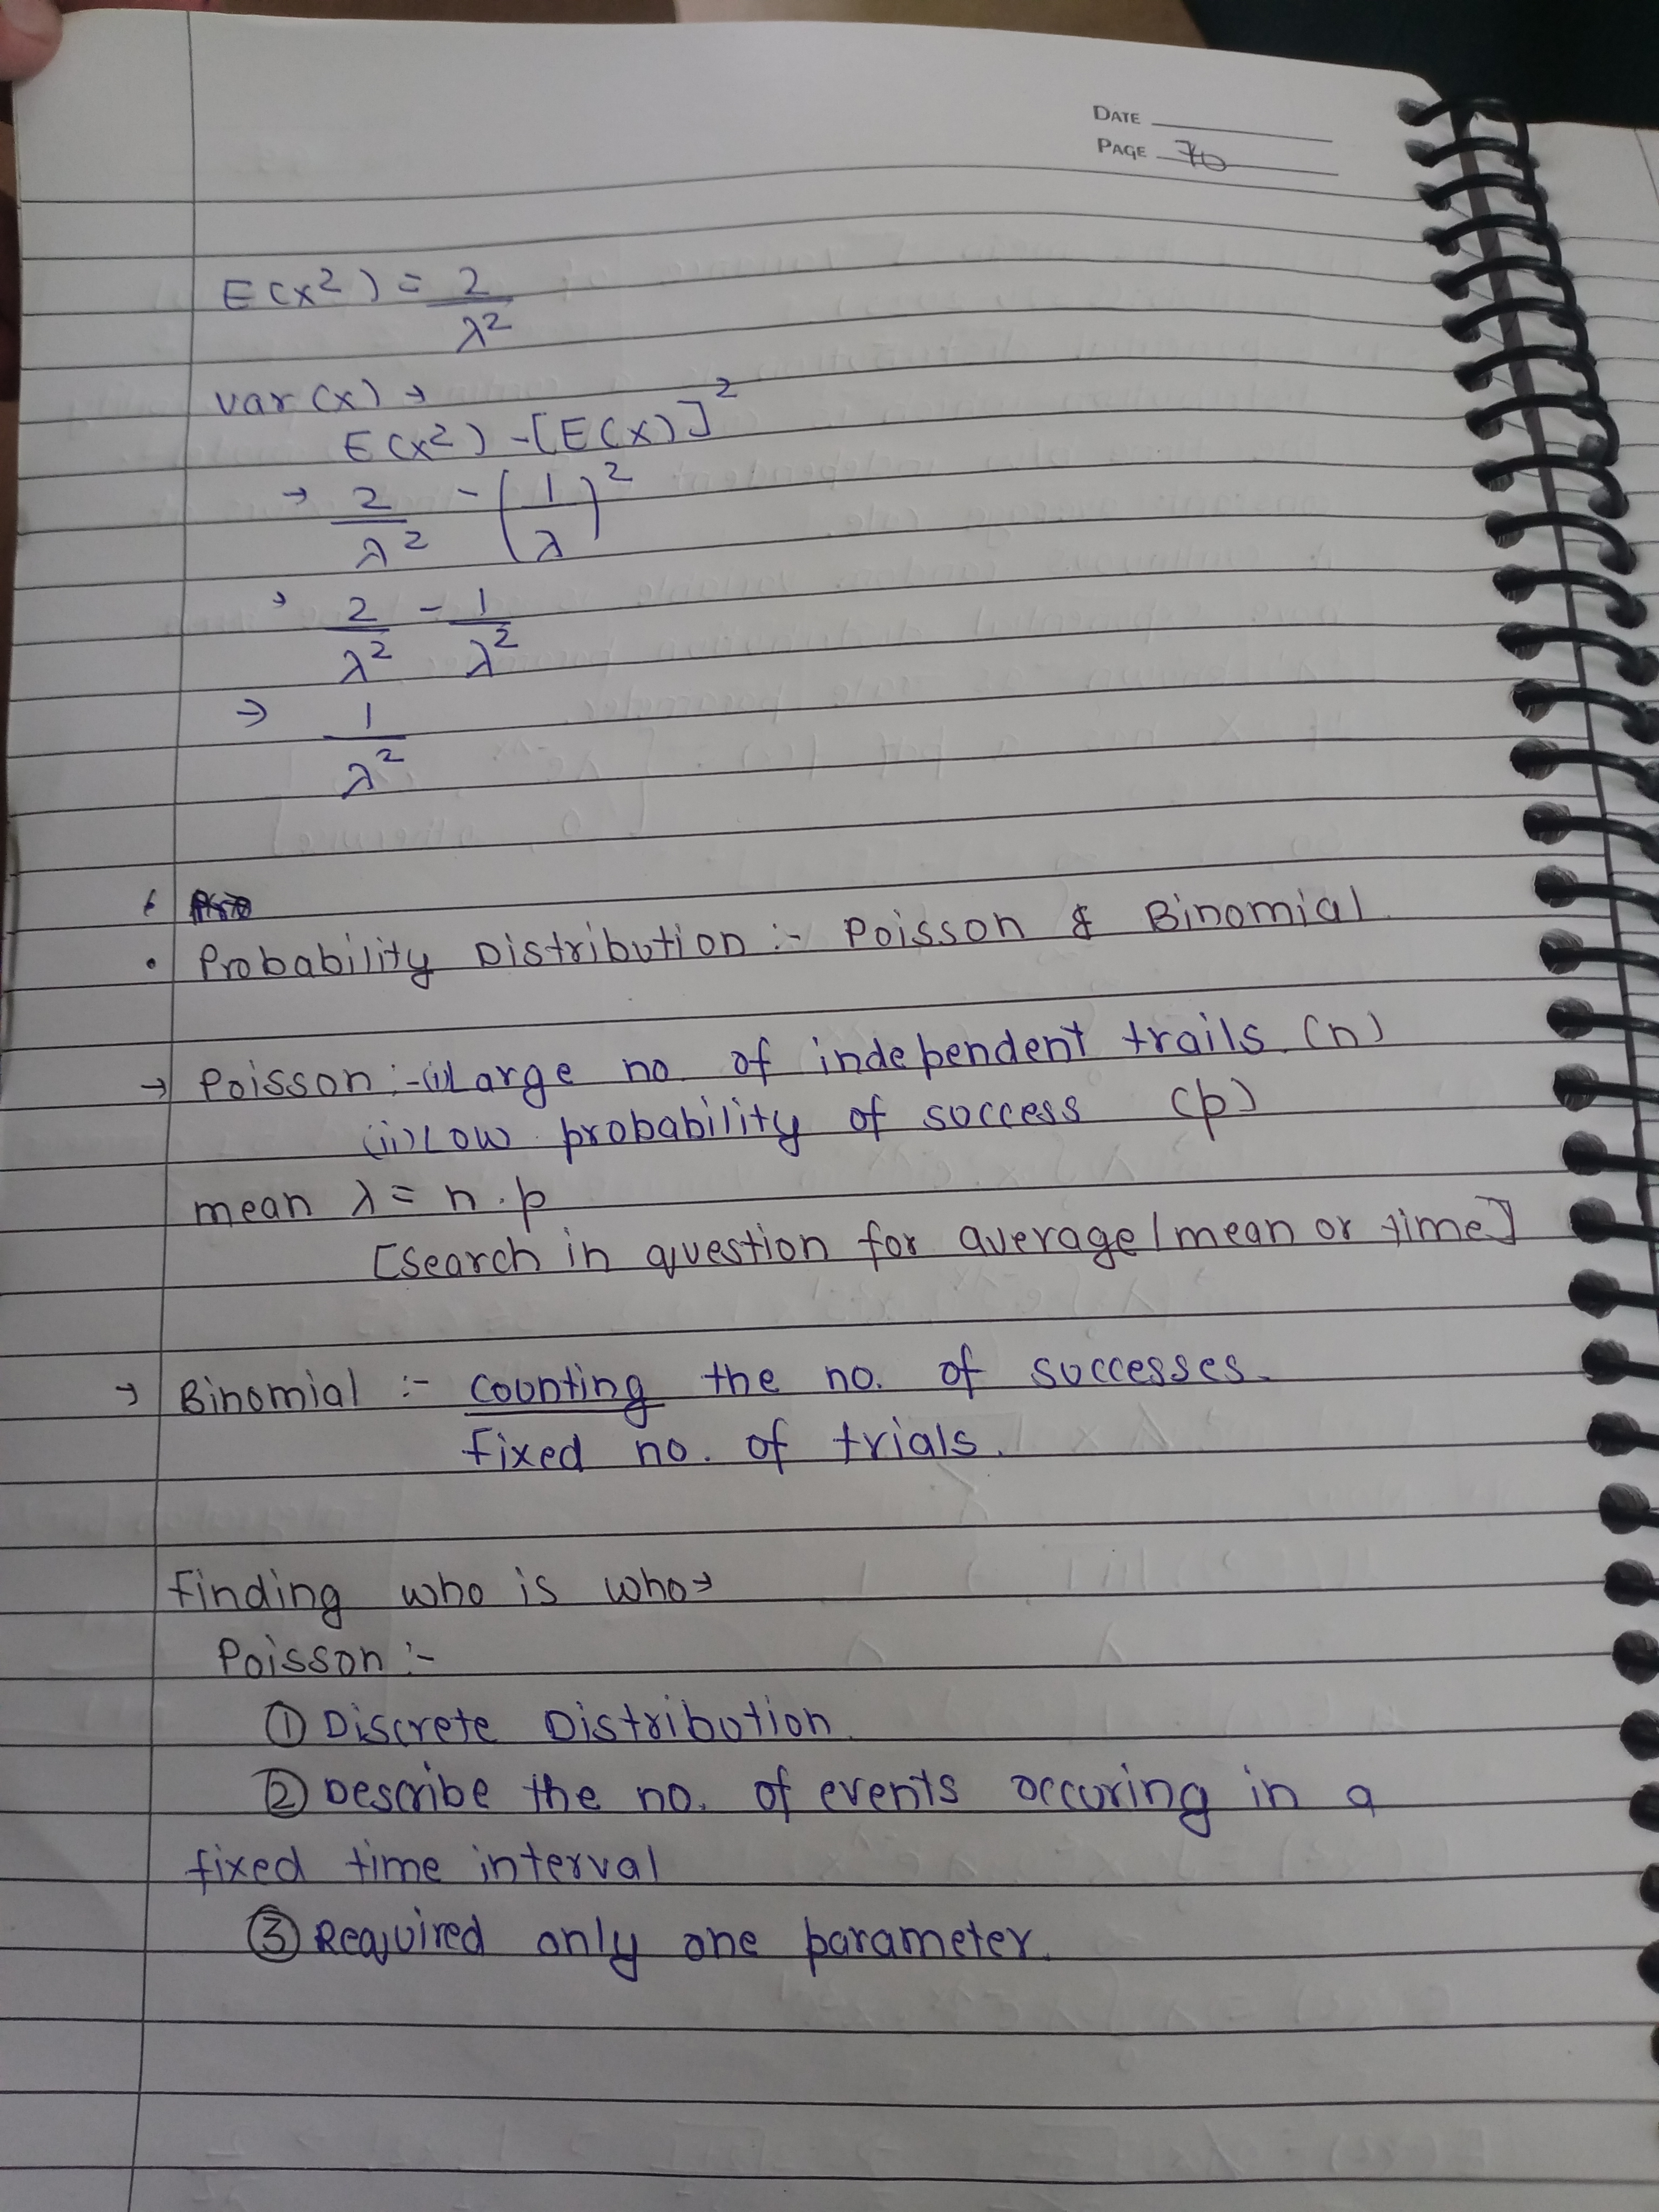 DATE
PAGE 70
E(x²) = 2/λ²
var(x) →
E(x²) - [E(x)]²
→ 2/λ² - (1/λ)²
→ 2/λ² - 1/λ²
→ 1/λ²
• Probability Distribution :- Poisson & Binomial
→ Poisson :- (i) Large no. of independent trails (n)
(ii) Low probability of success (p)
mean λ = n.p
[Search in question for average/mean or time]
→ Binomial :- counting the no. of successes.
fixed no. of trials.
Finding who is who →
Poisson :-
① Discrete Distribution.
② Describe the no. of events occuring in a
fixed time interval
③ Required only one parameter.